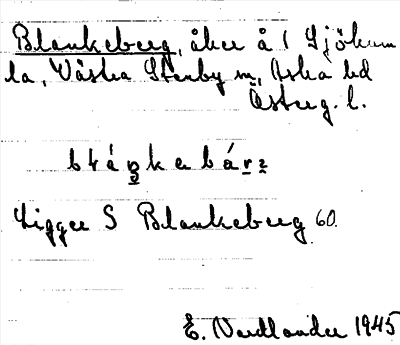 Blankeberg, åker å 1 Sjökum
la, Västra Stenby sn, Aska hd
Österg. l.
blánkebárg
Ligger S Blankeberg 60.
E. Nordlander 1945